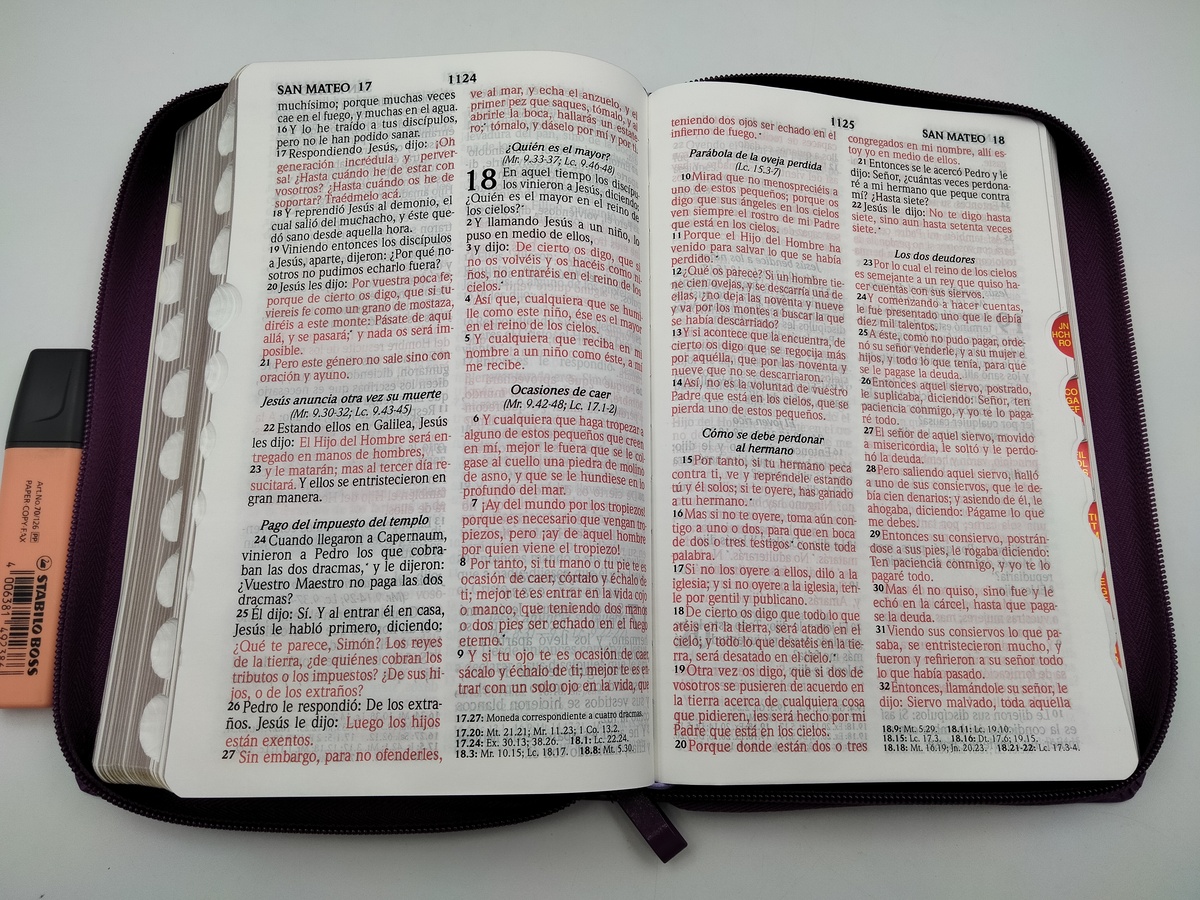 SAN MATEO 17
1124
muchísimo; porque muchas veces
cae en el fuego, y muchas en el agua.
16 Y lo he traído a tus discípulos,
pero no le han podido sanar.
17 Respondiendo Jesús, dijo: ¡Oh
generación incrédula y perver-
sa! ¿Hasta cuándo he de estar con
vosotros? ¿Hasta cuándo os he de
soportar? Traédmelo acá.
18 Y reprendió Jesús al demonio, el
cual salió del muchacho, y éste que-
dó sano desde aquella hora.
19 Viniendo entonces los discípulos
a Jesús, aparte, dijeron: ¿Por qué no-
sotros no pudimos echarlo fuera?
20 Jesús les dijo: Por vuestra poca fe;
porque de cierto os digo, que si tu-
viereis fe como un grano de mostaza,
diréis a este monte: Pásate de aquí
allá, y se pasará;* y nada os será im-
posible.
21 Pero este género no sale sino con
oración y ayuno.
Jesús anuncia otra vez su muerte
(Mr. 9.30-32; Lc. 9.43-45)
22 Estando ellos en Galilea, Jesús
les dijo: El Hijo del Hombre será en-
tregado en manos de hombres,
23 y le matarán; mas al tercer día re-
sucitará. Y ellos se entristecieron en
gran manera.
Pago del impuesto del templo
24 Cuando llegaron a Capernaum,
vinieron a Pedro los que cobra-
ban las dos dracmas,* y le dijeron:
¿Vuestro Maestro no paga las dos
dracmas?
25 Él dijo: Sí. Y al entrar él en casa,
Jesús le habló primero, diciendo:
¿Qué te parece, Simón? Los reyes
de la tierra, ¿de quiénes cobran los
tributos o los impuestos? ¿De sus hi-
jos, o de los extraños?
26 Pedro le respondió: De los extra-
ños. Jesús le dijo: Luego los hijos
están exentos.
27 Sin embargo, para no ofenderles,
ve al mar, y echa el anzuelo, y el
primer pez que saques, tómalo, y al
abrirle la boca, hallarás un estate-
ro;* tómalo, y dáselo por mí y por ti.
¿Quién es el mayor?
(Mr. 9.33-37; Lc. 9.46-48)
18 En aquel tiempo los discípu-
los vinieron a Jesús, diciendo:
¿Quién es el mayor en el reino de
los cielos?
2 Y llamando Jesús a un niño, lo
puso en medio de ellos,
3 y dijo: De cierto os digo, que si
no os volvéis y os hacéis como ni-
ños, no entraréis en el reino de los
cielos.*
4 Así que, cualquiera que se humi-
lle como este niño, ése es el mayor
en el reino de los cielos.
5 Y cualquiera que reciba en mi
nombre a un niño como éste, a mí
me recibe.
Ocasiones de caer
(Mr. 9.42-48; Lc. 17.1-2)
6 Y cualquiera que haga tropezar a
alguno de estos pequeños que creen
en mí, mejor le fuera que se le col-
gase al cuello una piedra de molino
de asno, y que se le hundiese en lo
profundo del mar.
7 ¡Ay del mundo por los tropiezos!
porque es necesario que vengan tro-
piezos, pero ¡ay de aquel hombre
por quien viene el tropiezo!
8 Por tanto, si tu mano o tu pie te es
ocasión de caer, córtalo y échalo de
ti; mejor te es entrar en la vida cojo
o manco, que teniendo dos manos
o dos pies ser echado en el fuego
eterno.*
9 Y si tu ojo te es ocasión de caer,
sácalo y échalo de ti; mejor te es en-
trar con un solo ojo en la vida, que
17.27: Moneda correspondiente a cuatro dracmas.
17.20: Mt. 21.21; Mr. 11.23; 1 Co. 13.2.
17.24: Ex. 30.13; 38.26. 18.1: Lc. 22.24.
18.3: Mr. 10.15; Lc. 18.17. 18.8: Mt. 5.30.
1125
SAN MATEO 18
teniendo dos ojos ser echado en el
infierno de fuego.*
Parábola de la oveja perdida
(Lc. 15.3-7)
10 Mirad que no menospreciéis a
uno de estos pequeños; porque os
digo que sus ángeles en los cielos
ven siempre el rostro de mi Padre
que está en los cielos.
11 Porque el Hijo del Hombre ha
venido para salvar lo que se había
perdido.*
12 ¿Qué os parece? Si un hombre tie-
ne cien ovejas, y se descarría una de
ellas, ¿no deja las noventa y nueve
y va por los montes a buscar la que
se había descarriado?
13 Y si acontece que la encuentra, de
cierto os digo que se regocija más
por aquélla, que por las noventa y
nueve que no se descarriaron.
14 Así, no es la voluntad de vuestro
Padre que está en los cielos, que se
pierda uno de estos pequeños.
Cómo se debe perdonar
al hermano
15 Por tanto, si tu hermano peca
contra ti, ve y repréndele estando
tú y él solos; si te oyere, has ganado
a tu hermano.*
16 Mas si no te oyere, toma aún con-
tigo a uno o dos, para que en boca
de dos o tres testigos* conste toda
palabra.
17 Si no los oyere a ellos, dilo a la
iglesia; y si no oyere a la iglesia, ten-
le por gentil y publicano.
18 De cierto os digo que todo lo que
atéis en la tierra, será atado en el
cielo; y todo lo que desatéis en la tie-
rra, será desatado en el cielo.*
19 Otra vez os digo, que si dos de
vosotros se pusieren de acuerdo en
la tierra acerca de cualquiera cosa
que pidieren, les será hecho por mi
Padre que está en los cielos.
20 Porque donde están dos o tres
congregados en mi nombre, allí es-
toy yo en medio de ellos.
21 Entonces se le acercó Pedro y le
dijo: Señor, ¿cuántas veces perdona-
ré a mi hermano que peque contra
mí? ¿Hasta siete?
22 Jesús le dijo: No te digo hasta
siete, sino aun hasta setenta veces
siete.*
Los dos deudores
23 Por lo cual el reino de los cielos
es semejante a un rey que quiso ha-
cer cuentas con sus siervos.
24 Y comenzando a hacer cuentas,
le fue presentado uno que le debía
diez mil talentos.
25 A éste, como no pudo pagar, orde-
nó su señor venderle, y a su mujer e
hijos, y todo lo que tenía, para que
se le pagase la deuda.
26 Entonces aquel siervo, postrado,
le suplicaba, diciendo: Señor, ten
paciencia conmigo, y yo te lo paga-
ré todo.
27 El señor de aquel siervo, movido
a misericordia, le soltó y le perdo-
nó la deuda.
28 Pero saliendo aquel siervo, halló
a uno de sus consiervos, que le de-
bía cien denarios; y asiendo de él, le
ahogaba, diciendo: Págame lo que
me debes.
29 Entonces su consiervo, postrán-
dose a sus pies, le rogaba diciendo:
Ten paciencia conmigo, y yo te lo
pagaré todo.
30 Mas él no quiso, sino fue y le
echó en la cárcel, hasta que paga-
se la deuda.
31 Viendo sus consiervos lo que pa-
saba, se entristecieron mucho, y
fueron y refirieron a su señor todo
lo que había pasado.
32 Entonces, llamándole su señor, le
dijo: Siervo malvado, toda aquella
18.9: Mt. 5.29. 18.11: Lc. 19.10.
18.15: Lc. 17.3. 18.16: Dt. 17.6; 19.15.
18.18: Mt. 16.19; Jn. 20.23. 18.21-22: Lc. 17.3-4.
JN
HCH
RO
CO
GA
EF
Art.No.70/126
PAPER COPY FAX
STABILO BOSS